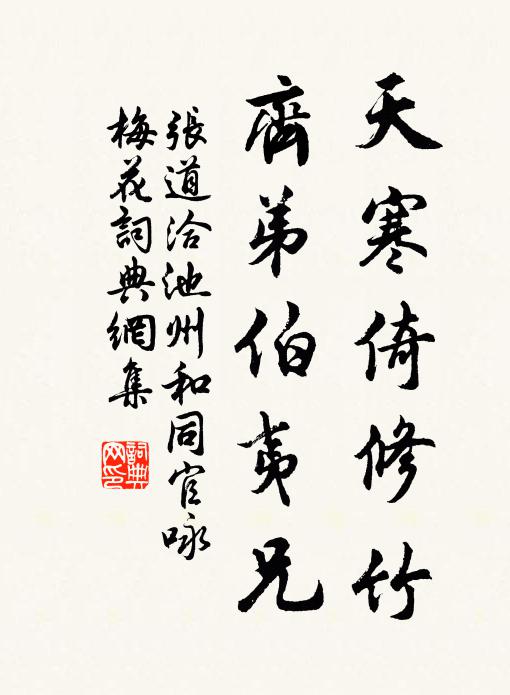 天寒倚修竹
齊弟伯夷兄
張道洽池州和同官咏
梅花詞典網集
詞典網印